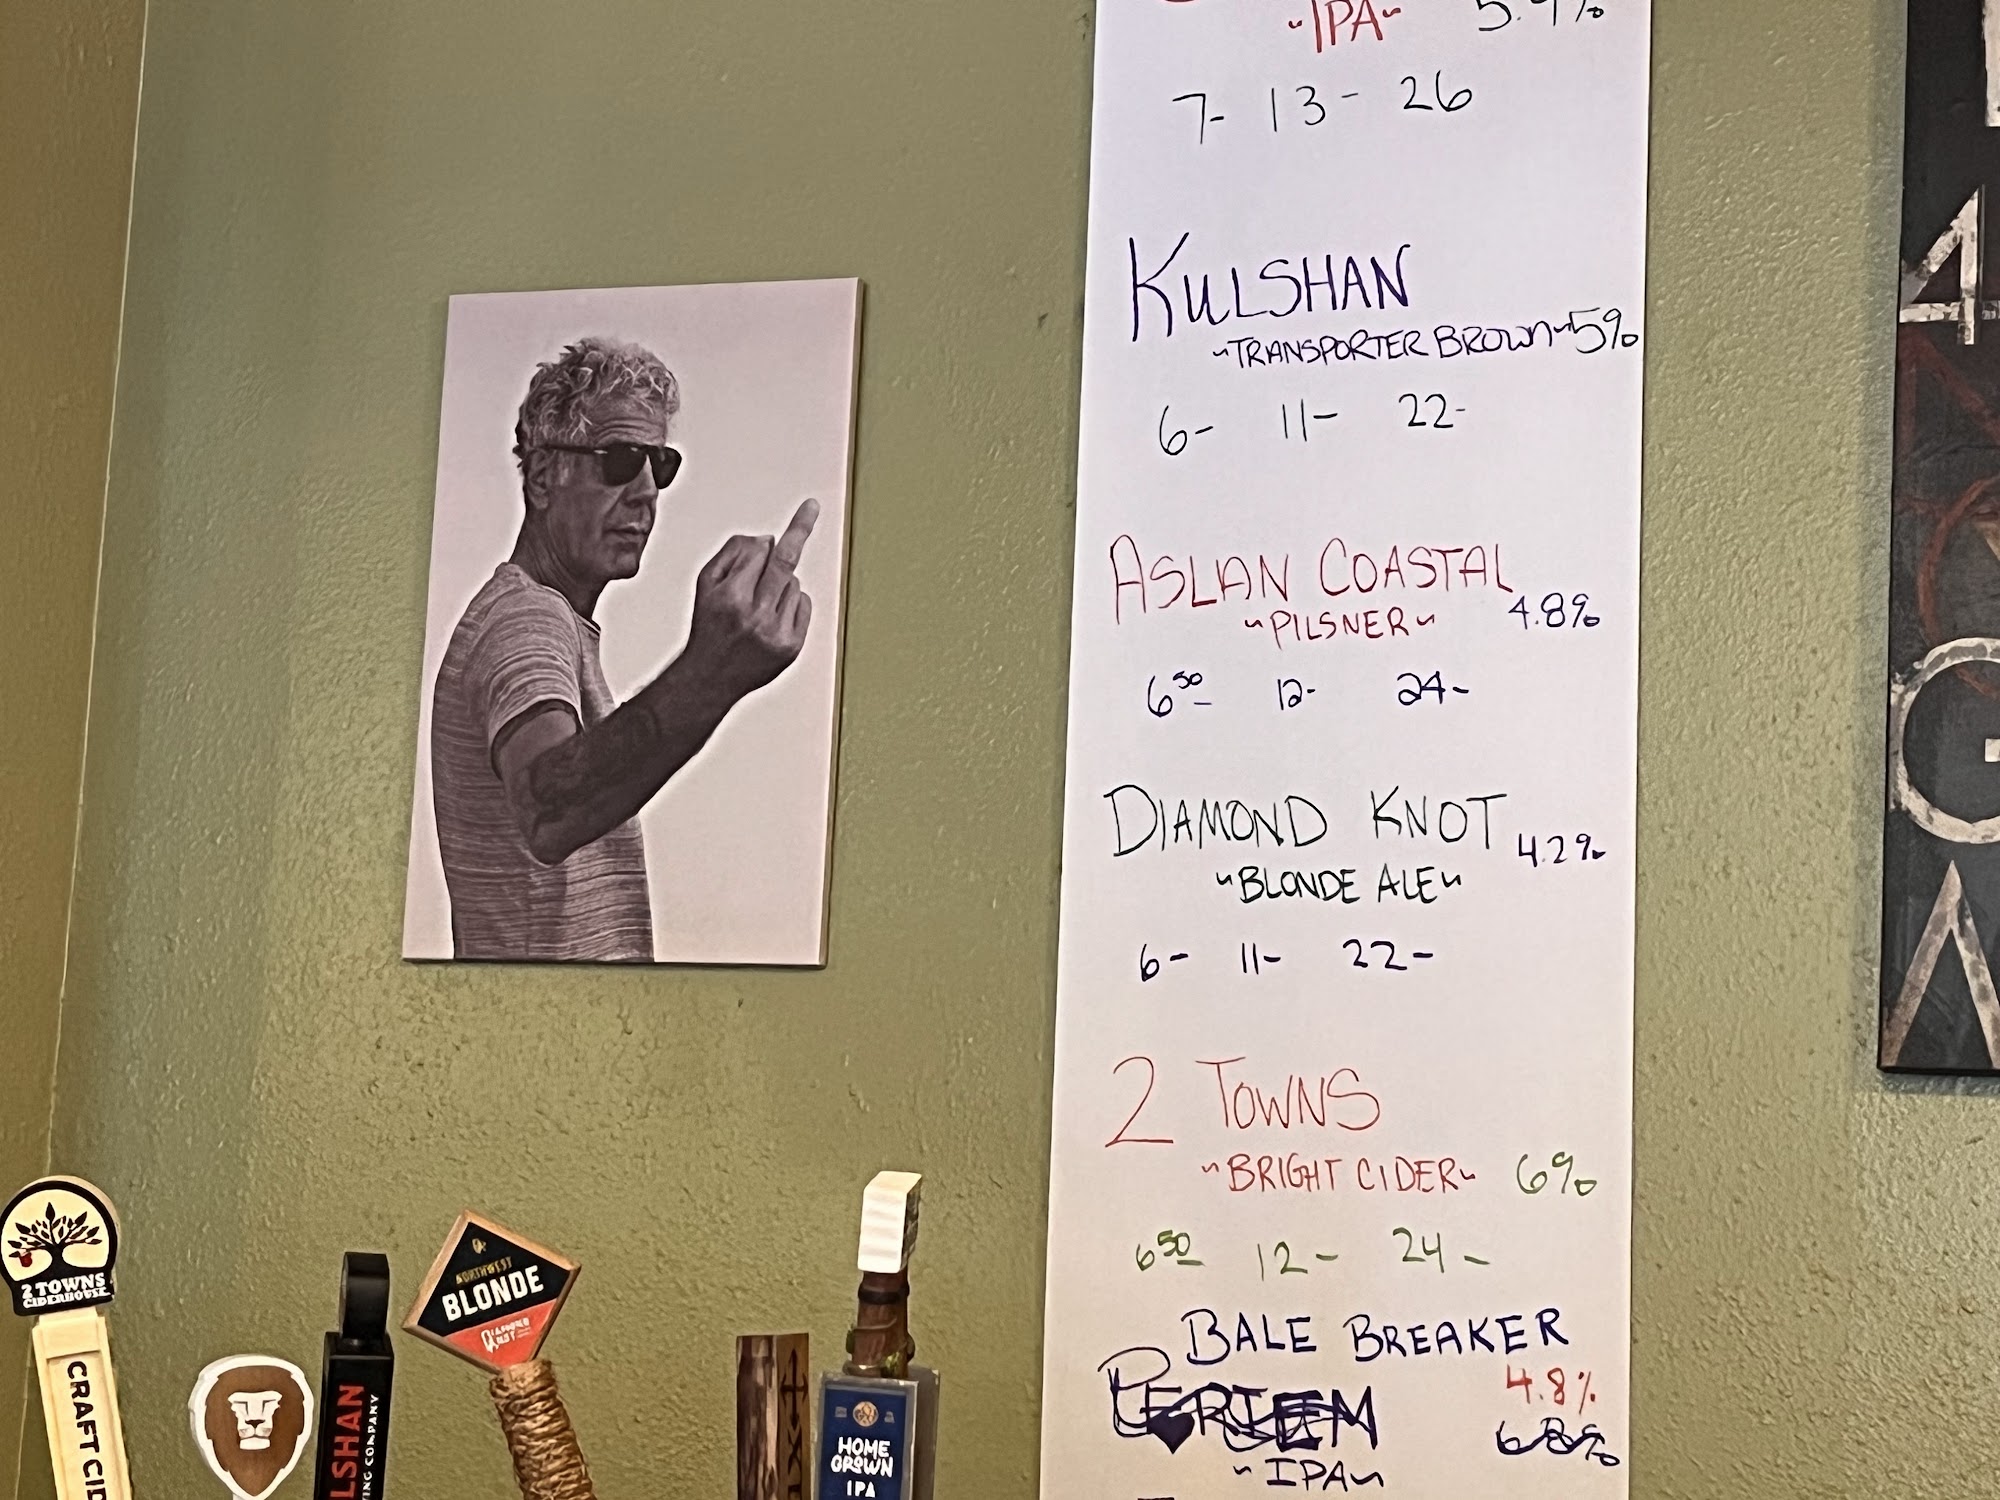 ~IPA~
7- 13- 26
KULSHAN
~TRANSPORTER BROWN~ 5%
6- 11- 22-
ASLAN COASTAL
~PILSNER~ 4.8%
6⁵⁰ 12- 24-
DIAMOND KNOT 4.2%
~BLONDE ALE~
6- 11- 22-
2 TOWNS
~BRIGHT CIDER~ 6%
6⁵⁰ 12- 24-
BALE BREAKER
4.8%
~IPA~
4
G
A
2 TOWNS
CIDERHOUSE
CRAFT CID
LSHAN
ING COMPANY
NORTHWEST
BLONDE
DIAMOND
KNOT
HOME
GROWN
IPA